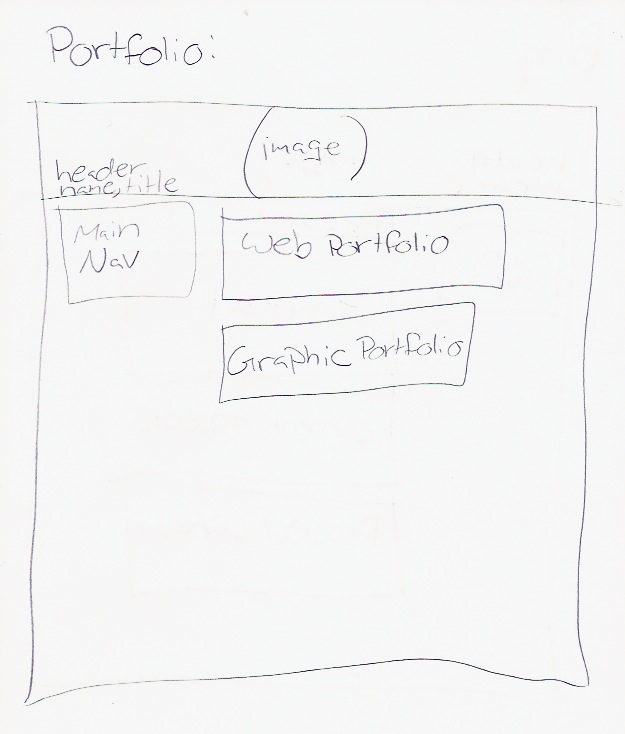 Portfolio:
image
header
name, title
Main
Nav
Web Portfolio
Graphic Portfolio